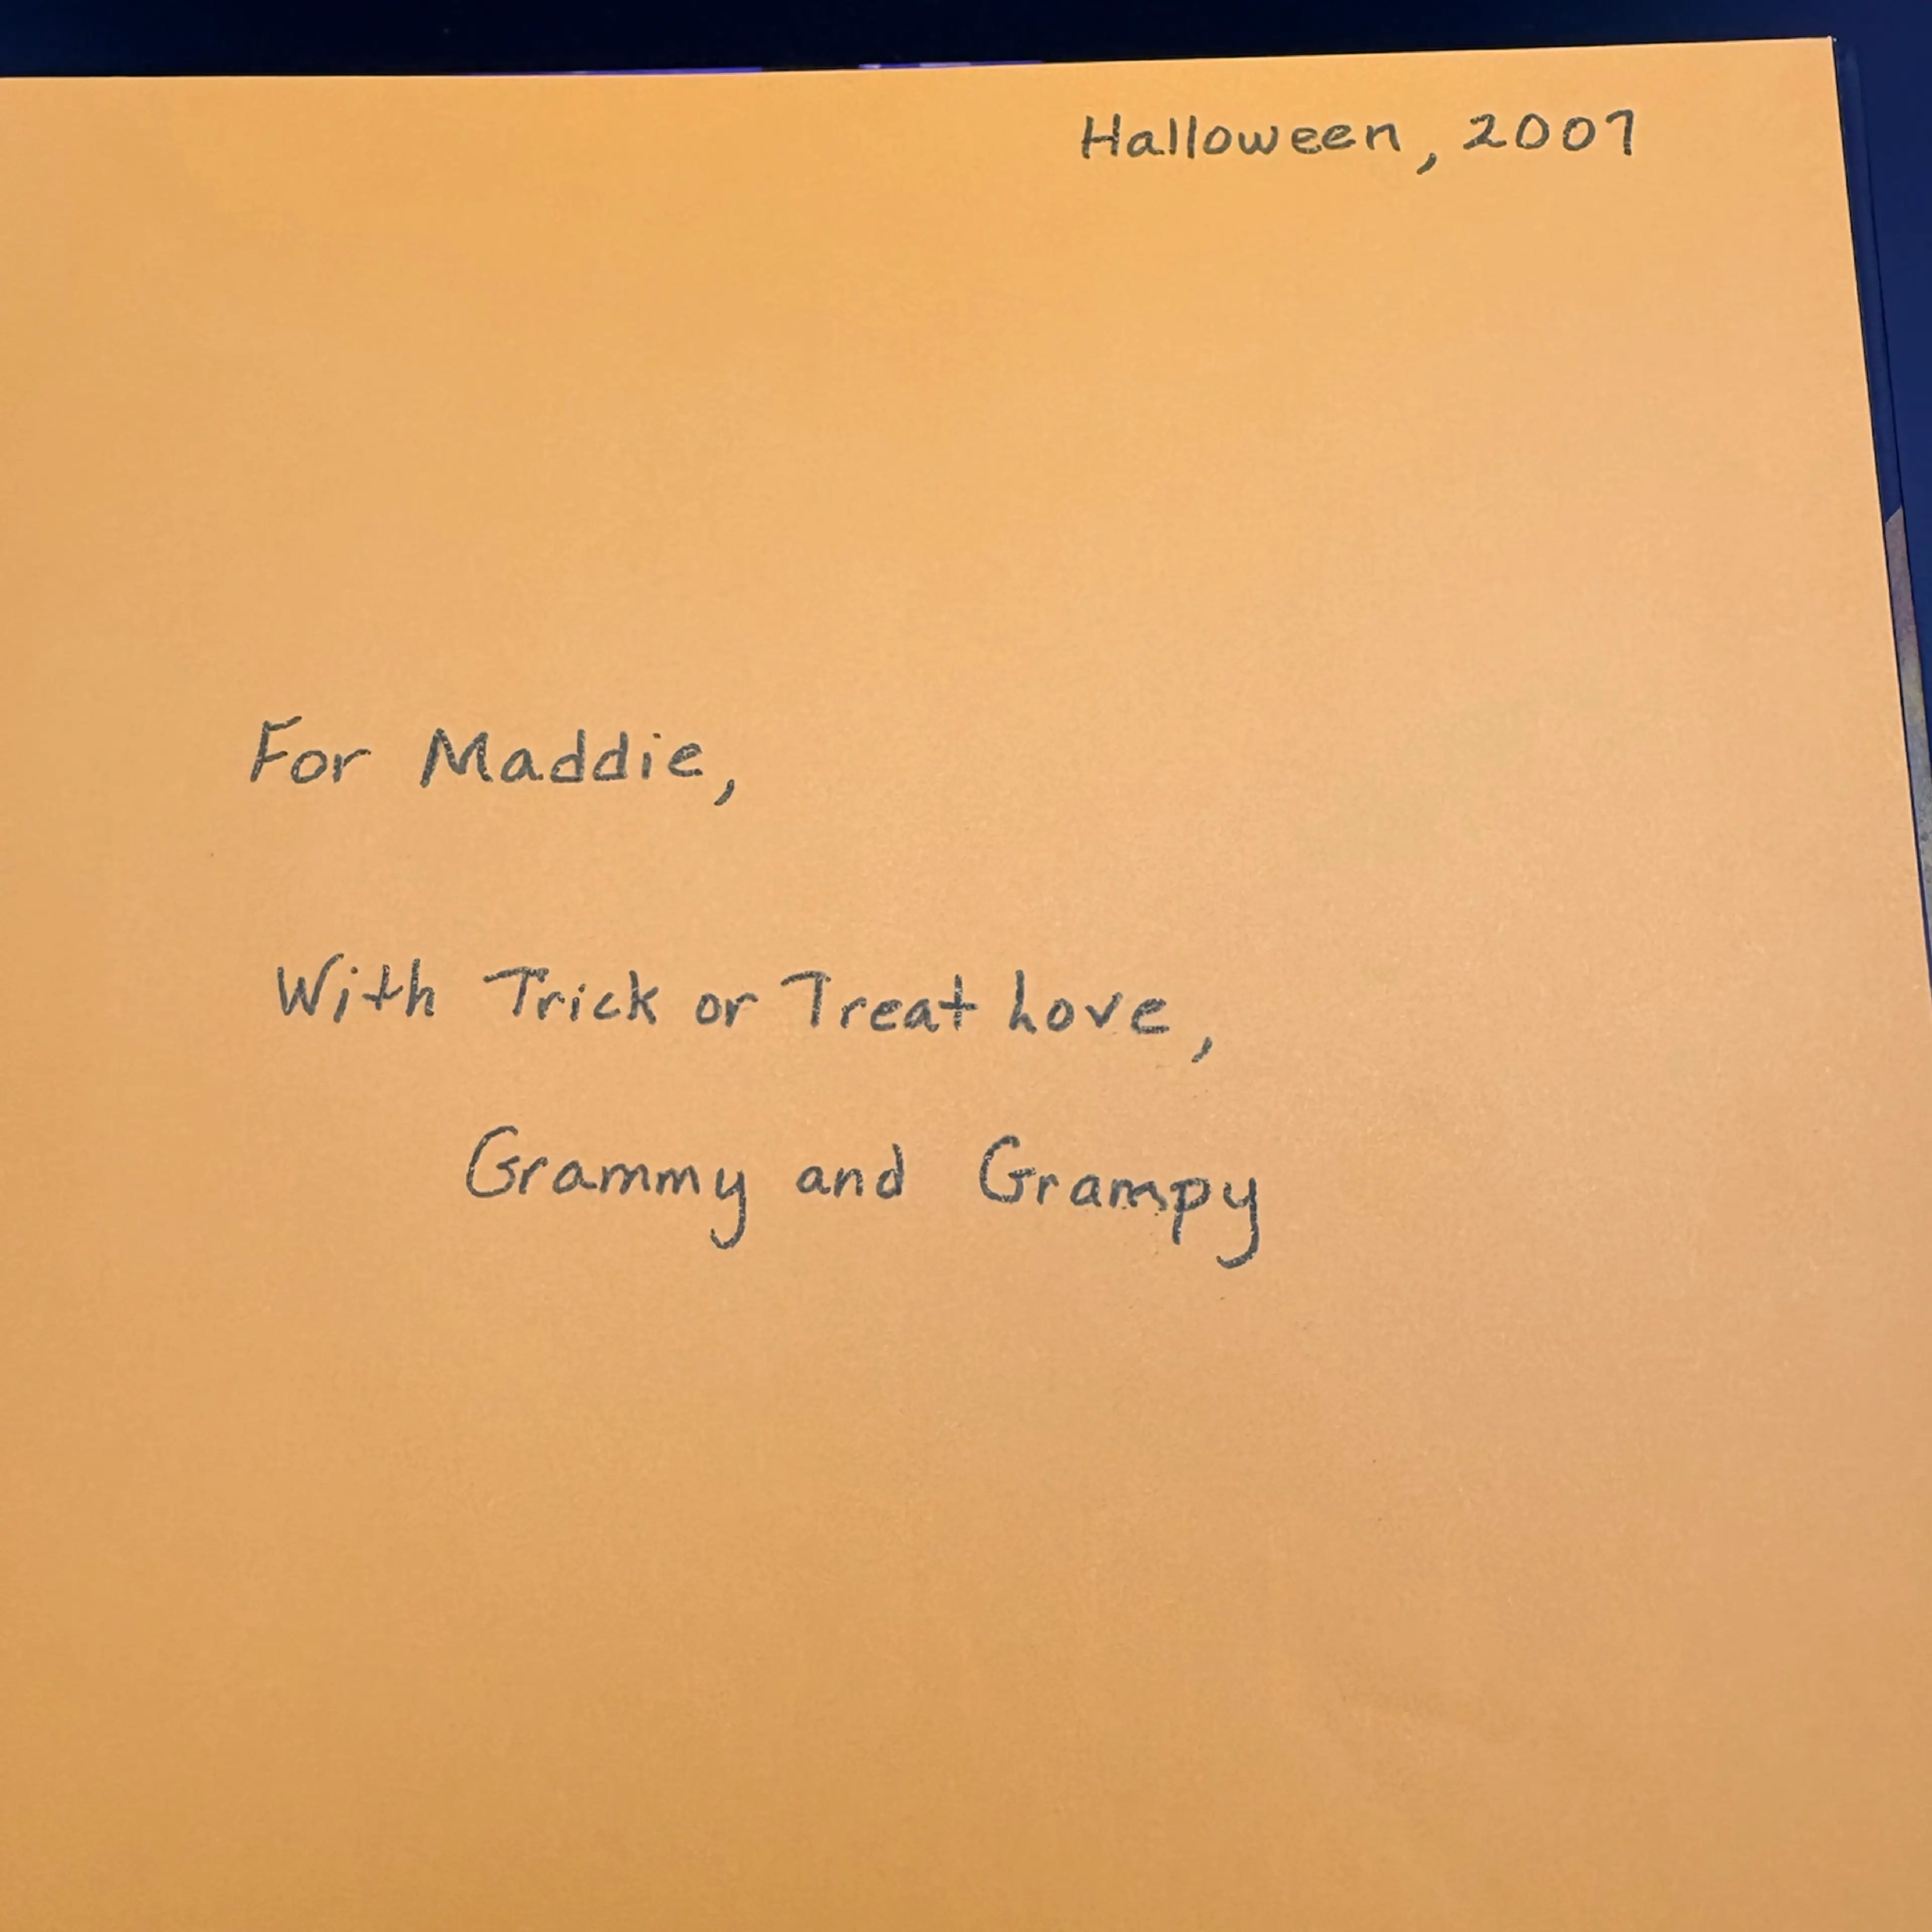 Halloween, 2007
For Maddie,
With Trick or Treat Love,
Grammy and Grampy